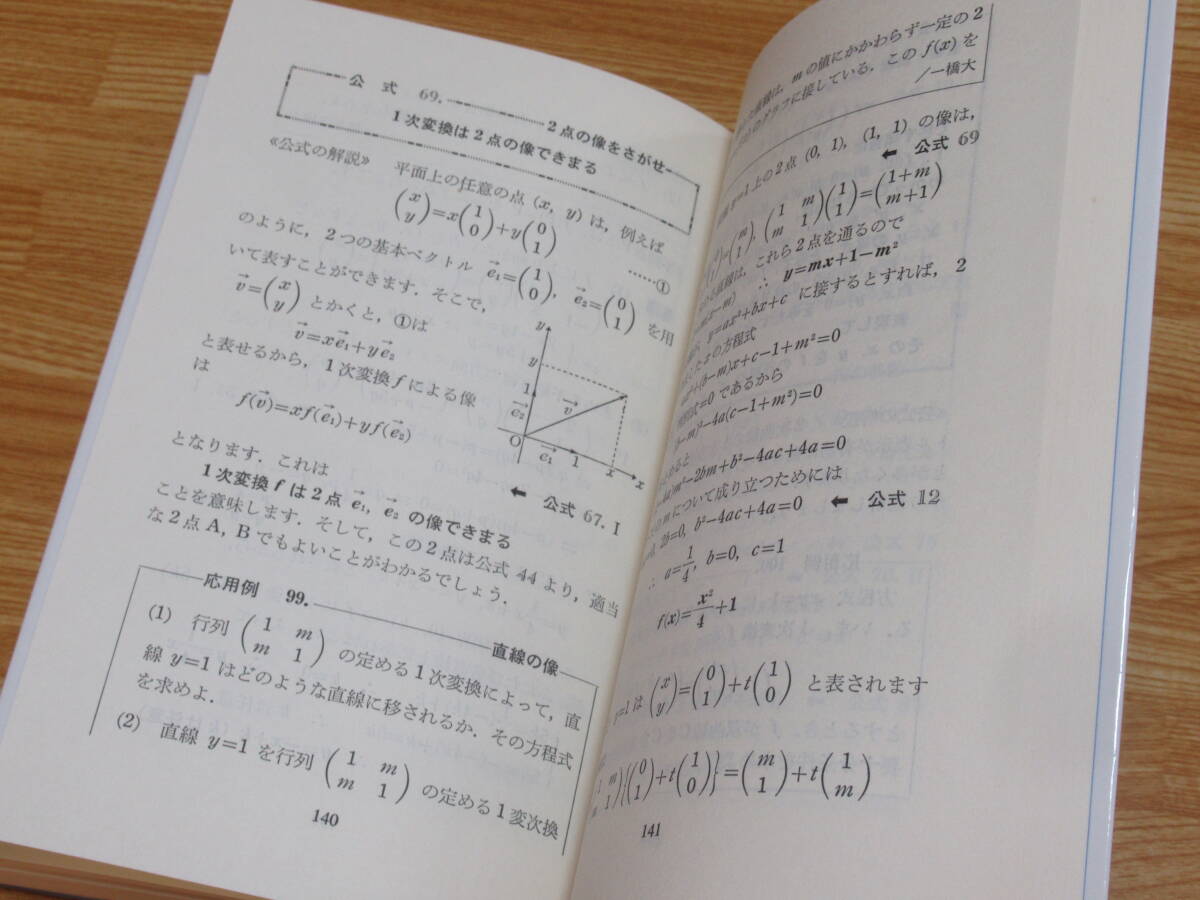 公式 69. 2点の像をさがせ
1次変換は2点の像できまる
≪公式の解説≫ 平面上の任意の点 (x, y) は, 例えば
(x y)=x(1 0)+y(0 1) ……①
のように, 2つの基本ベクトル e₁→=(1 0), e₂→=(0 1) を用
いて表すことができます. そこで,
v→=(x y) とかくと, ①は
v→=xe₁→+ye₂→
と表せるから, 1次変換 f による像
は
f(v→)=xf(e₁→)+yf(e₂→)
y
y
1
e₂→
v→
O
e₁→
1
x
x
となります. これは
⬅ 公式 67. I
1次変換 f は2点 e₁→, e₂→ の像できまる
ことを意味します. そして, この2点は公式 44 より, 適当
な2点 A, B でもよいことがわかるでしょう.
応用例 99. 直線の像
(1) 行列 (1 m m 1) の定める1次変換によって, 直
線 y=1 はどのような直線に移されるか. その方程式
を求めよ.
(2) 直線 y=1 を行列 (1 m m 1) の定める1変次換
140
した直線は, m の値にかかわらず一定の2
のグラフに接している. この f(x) を
/一橋大
y=1 上の2点 (0, 1), (1, 1) の像は,
⬅ 公式 69
=(m 1), (1 m m 1)(1 1)=(1+m m+1)
直線は, これら2点を通るので
∴ y=mx+1−m²
y=ax²+bx+c に接するとすれば, 2
した x の方程式
ax²+(b−m)x+c−1+m²=0
=0 であるから
−m)²−4a(c−1+m²)=0
ると
m²−2bm+b²−4ac+4a=0
m について成り立つためには
2b=0, b²−4ac+4a=0 ⬅ 公式 12
∴ a=1/4, b=0, c=1
f(x)=x²/4+1
y=1 は (x y)=(0 1)+t(1 0) と表されます
(1 m m 1){(0 1)+t(1 0)}=(m 1)+t(1 m)
141